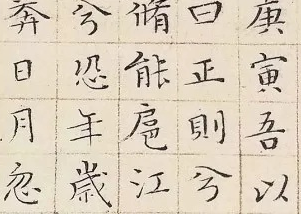 庚寅吾以
曰正則兮
脩能扈江
兮恐年歲
奔日月忽